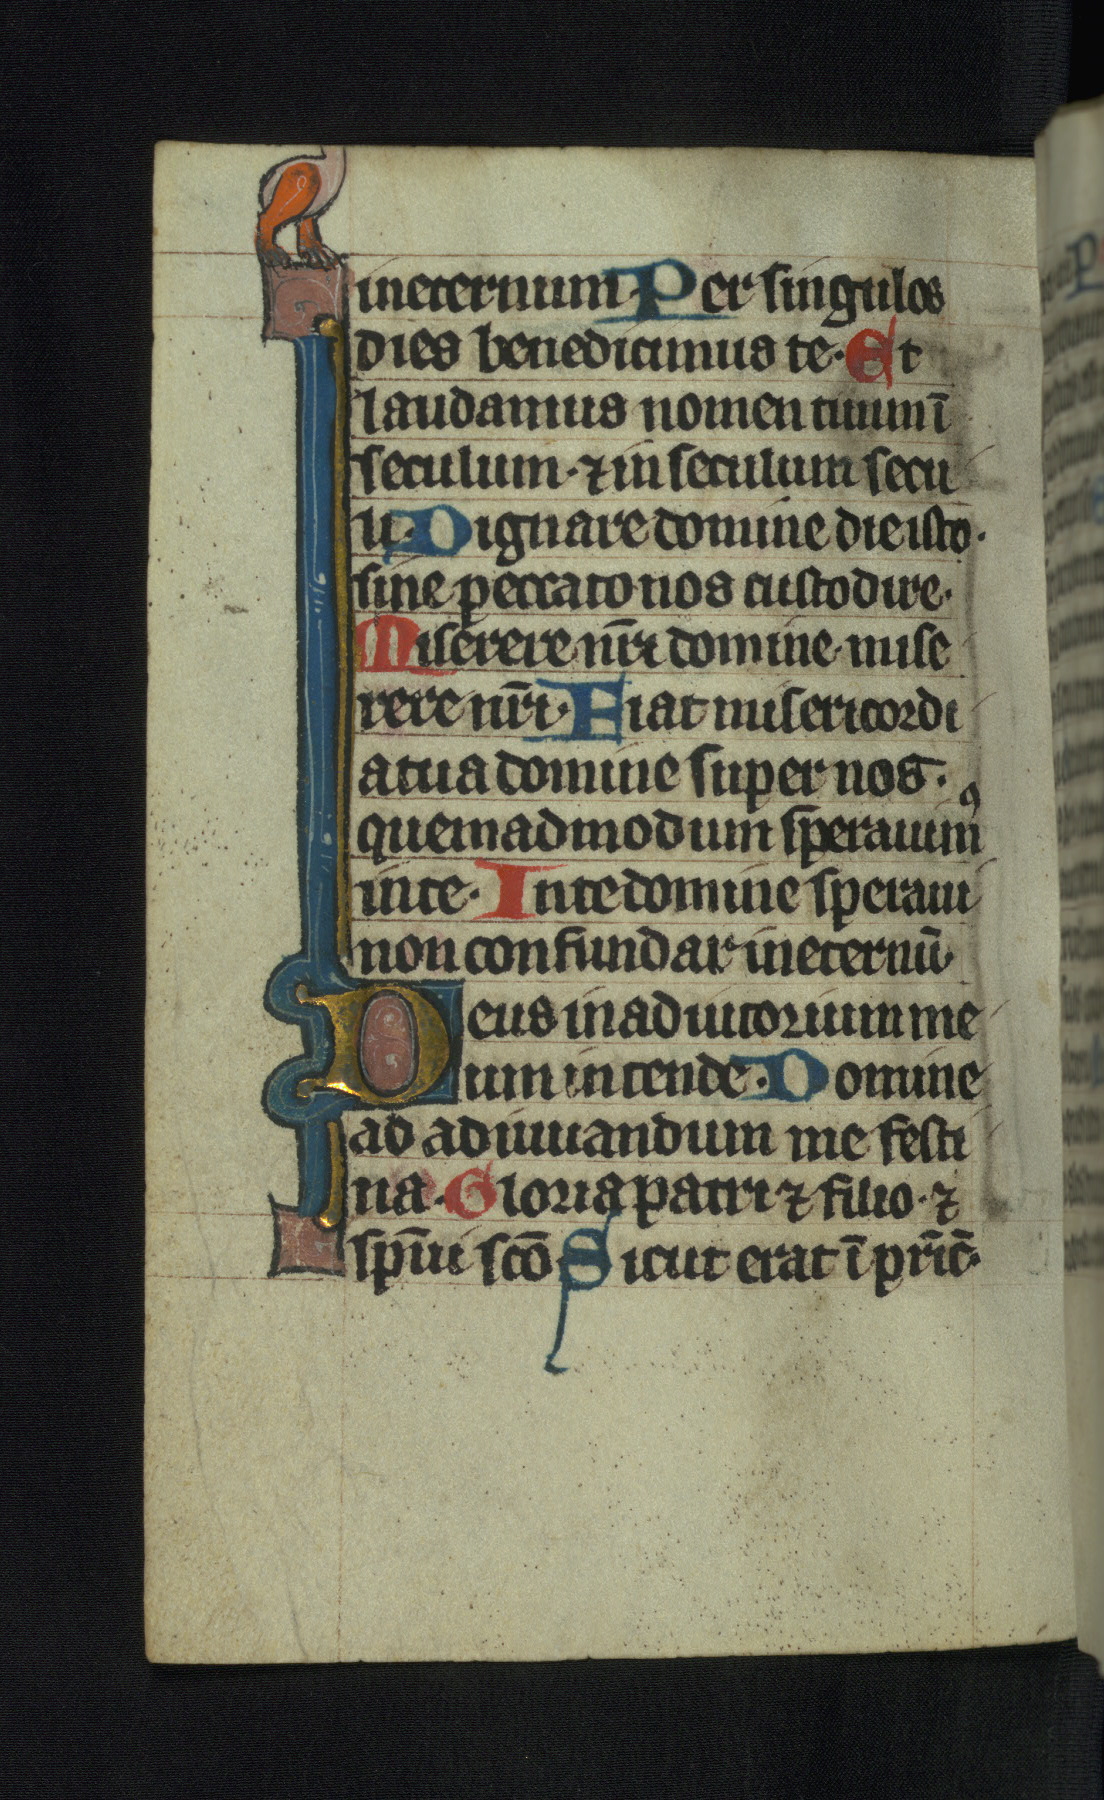 ineternum. Per singulos
dies benedicimus te. Et
laudamus nomen tuum ī
seculum. ⁊ in seculum secu
li. Dignare domine die isto.
sine peccato nos custodire.
Miserere nr̄i domine. mise
rere nr̄i. Fiat misericordi
a tua domine super nos.
quemadmodum sperauimꝰ
in te. In te domine speraui
non confundar in eternū.
Deus in adiutorium me
um intende. Domine
ad adiuuandum me festi
na. Gloria patri ⁊ filio. ⁊
sp̄iui sc̄o. Sicut erat ī pr̄ic̄.